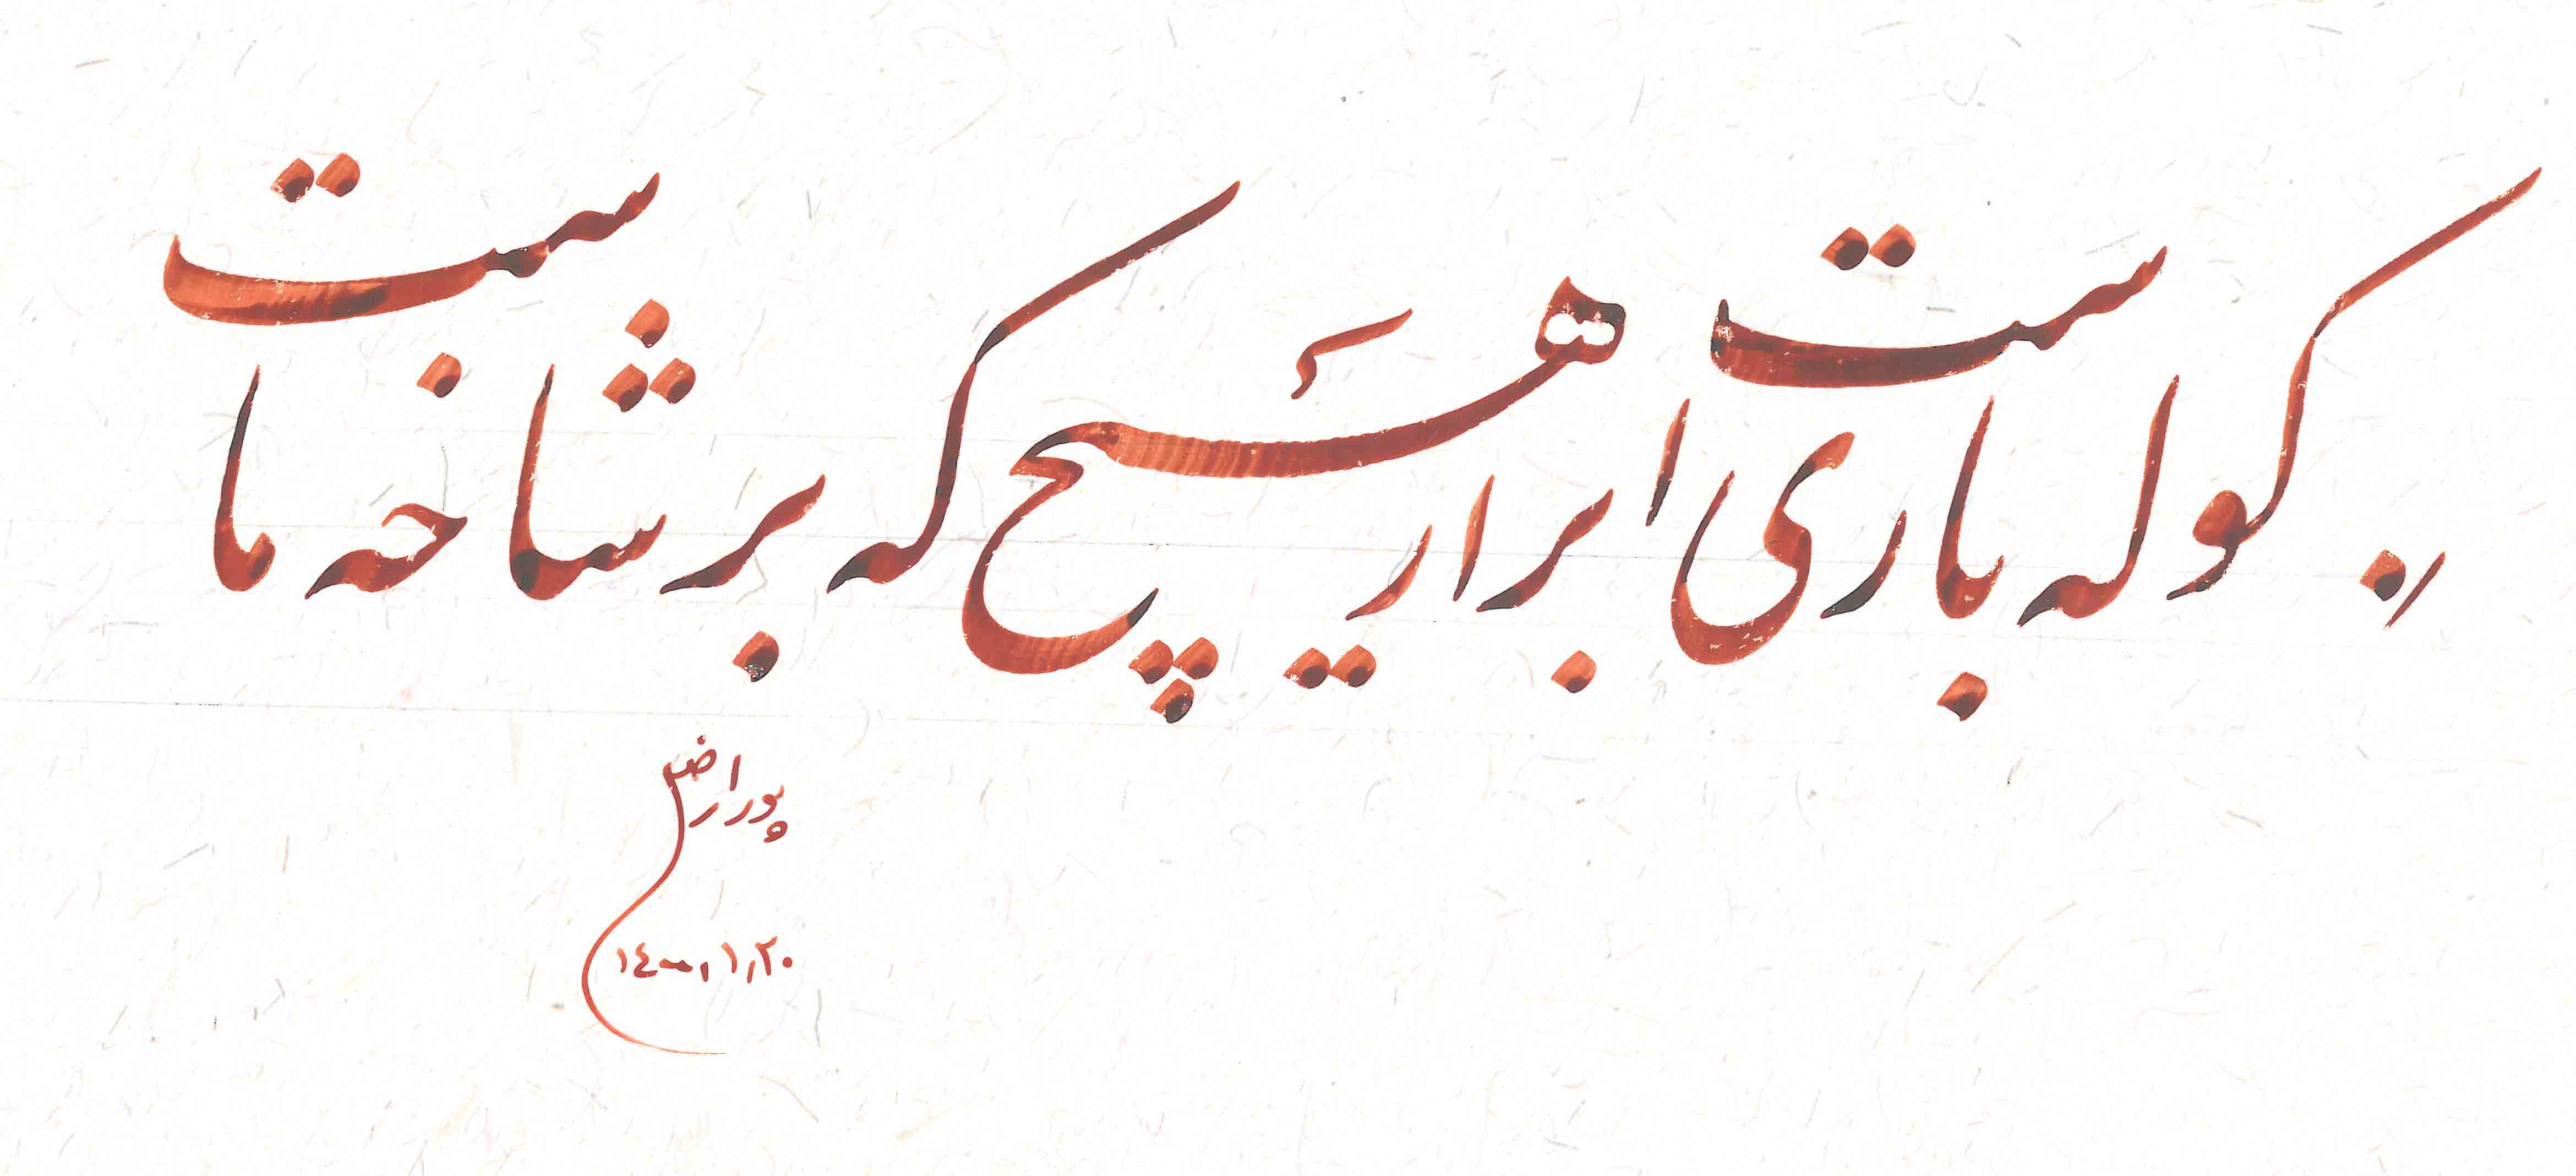 کوله باری است برار هیچ که بر شاخه ماست
پورراضی
۱۴۰۰/۱/۲۰